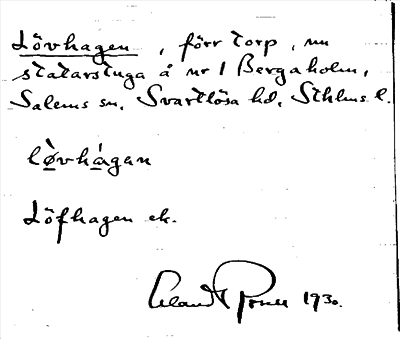 Lövhagen, förr torp, nu
statarstuga å nr 1 Bergaholm,
Salems sn, Svartlösa hd, Sthlms l.
lø̀vhá̱gan
Löfhagen ek.
1930.